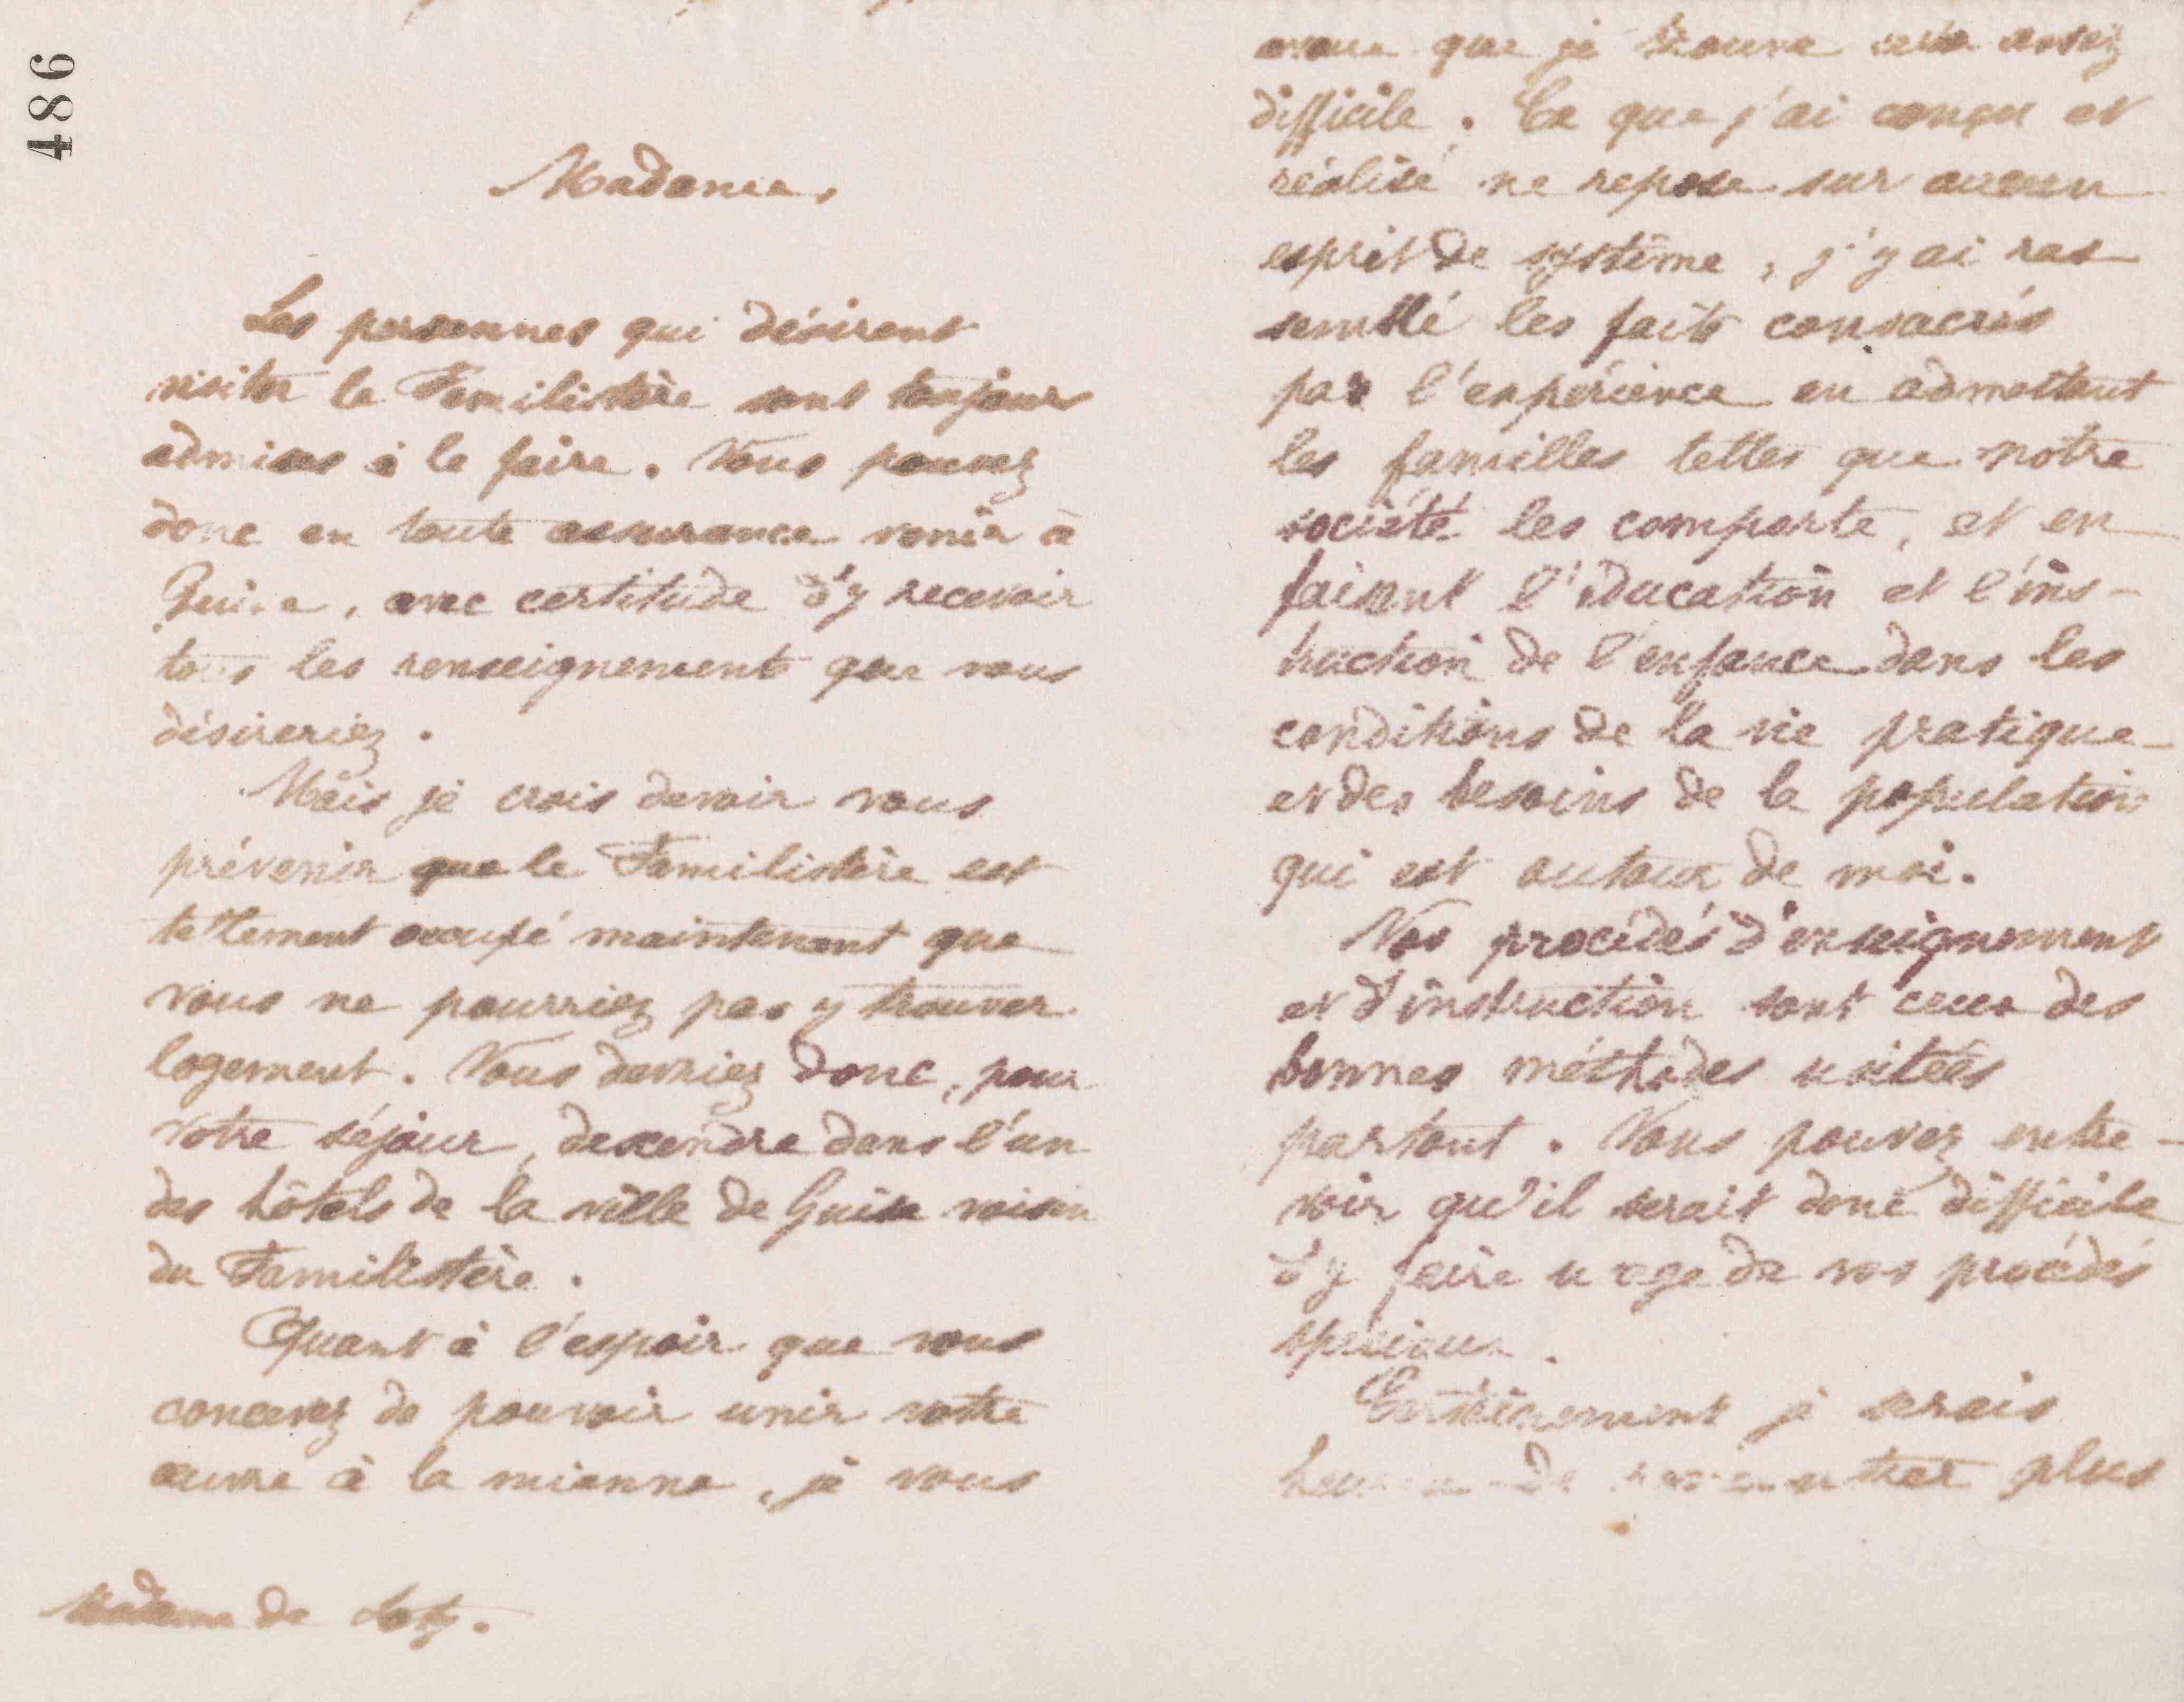 486
Madame,
Les personnes qui désirent
visiter le Familistère sont toujours
admises à le faire. Vous pouvez
donc en toute assurance venir à
Guise, avec certitude d'y recevoir
tous les renseignements que vous
désireriez.
Mais je crois devoir vous
prévenir que le Familistère est
tellement occupé maintenant que
vous ne pourriez pas y trouver
logement. Vous devriez donc, pour
votre séjour, descendre dans l'un
des hôtels de la ville de Guise voisin
du Familistère.
Quant à l'espoir que vous
concevez de pouvoir unir votre
œuvre à la mienne, je vous
Madame de
avoue que je trouve cela assez
difficile. Ce que j'ai conçu et
réalisé ne repose sur aucun
esprit de système, j'y ai ras
semblé les faits consacrés
par l'expérience en admettant
les familles telles que notre
société les comporte, et en
faisant l'éducation et l'ins-
truction de l'enfance dans les
conditions de la vie pratique
et des besoins de la population
qui est autour de moi.
Nos procédés d'enseignement
et d'instruction sont ceux des
bonnes méthodes usitées
partout. Vous pouvez entre-
voir qu'il serait donc difficile
d'y faire usage de vos procédés
spéciaux.
Certainement je serais
heureux de rencontrer plus